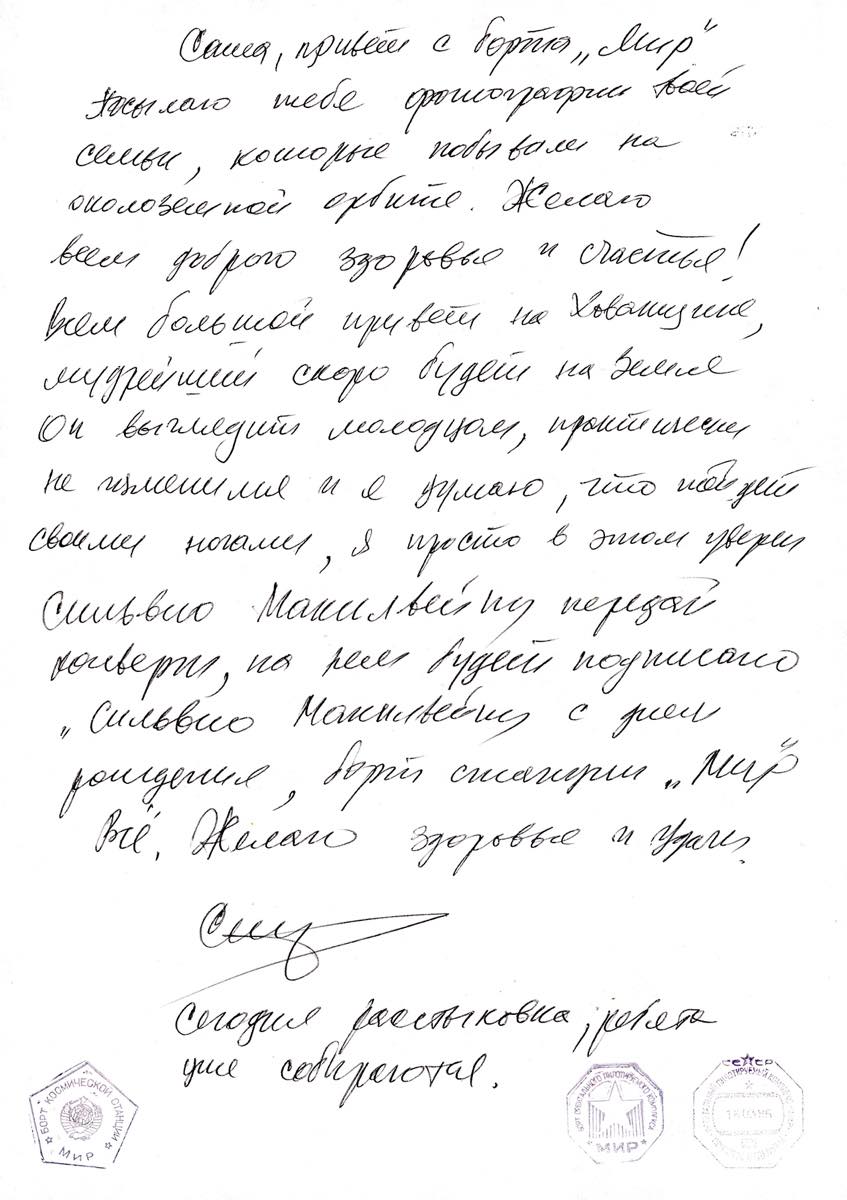 Саша, привет с борта „Мир"
Посылаю тебе фотографии твоей
семьи, которые побывали на
околоземной орбите. Желаю
всем доброго здоровья и счастья!
Всем большой привет на Хованщине,
мудрейший скоро будет на Земле
Он выглядит молодцом, практически
не изменился и я думаю, что пойдет
своими ногами, я просто в этом уверен
Сильвио Макильвейну передай
конверт, на нем будет подписано
„Сильвио Макильвейну с днем
рождения, борт станции „Мир"
Всё. Желаю здоровья и удачи.
Сегодня расстыковка, ребята
уже собираются.
БОРТ КОСМИЧЕСКОЙ СТАНЦИИ
МИР
БОРТ ОРБИТАЛЬНОГО ПИЛОТИРУЕМОГО КОМПЛЕКСА
МИР
СССР